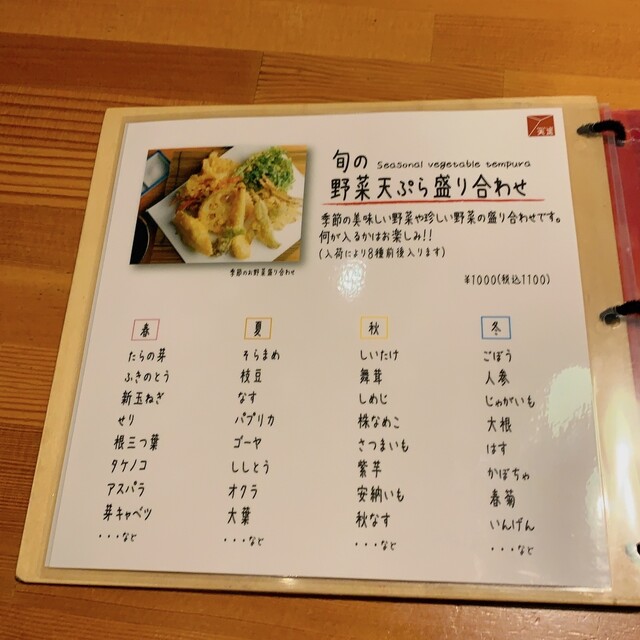 旬の Seasonal vegetable tempura
野菜天ぷら盛り合わせ
季節の美味しい野菜や珍しい野菜の盛り合わせです。
何が入るかはお楽しみ!!
(入荷により8種前後入ります)
季節のお野菜盛り合わせ
¥1000(税込1100)
春
たらの芽
ふきのとう
新玉ねぎ
せり
根三つ葉
タケノコ
アスパラ
芽キャベツ
・・・など
夏
そらまめ
枝豆
なす
パプリカ
ゴーヤ
ししとう
オクラ
大葉
・・・など
秋
しいたけ
舞茸
しめじ
株なめこ
さつまいも
紫芋
安納いも
秋なす
・・・など
冬
ごぼう
人参
じゃがいも
大根
はす
かぼちゃ
春菊
いんげん
・・・など